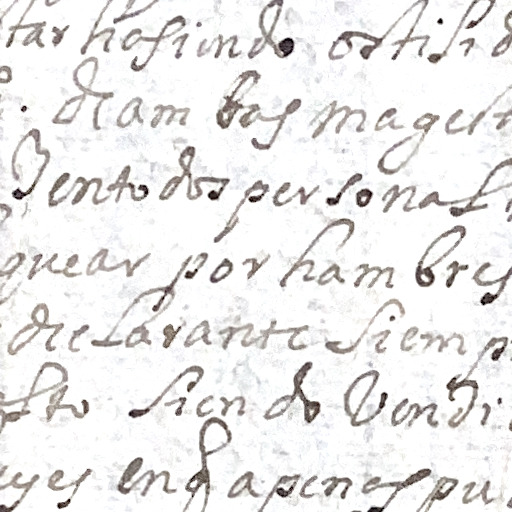 tar hasiendo ostili d
. de am bas magest
Bento dos personas
quear por ham bres
de clarante siemp
sto sien do Vendi
uyes en q apenas pu